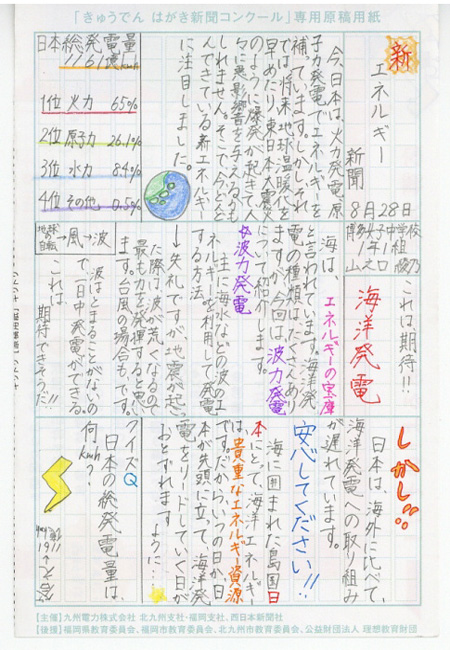 「きゅうでん はがき新聞コンクール」専用原稿用紙
新
エネルギー
新聞
8月28日
博多女子中学校
1年1組
山之口
今、日本は、火力発電、原
子力発電でエネルギーを
補っています。しかし、それ
では将来、地球温暖化を
早めたり、東日本大震災
のように爆発が起きて、人
々に悪影響を与えるかも
しれません。そこで、今どん
どんできている新エネルギー
に注目しました。
日本総発電量
1161億kwh
1位 火力 65%
2位 原子力 26.1%
3位 水力 8.4%
4位 その他 0.5%
これは期待!!
海洋発電
海は、エネルギーの宝庫
と言われています。海洋発
電の種類はたくさんあり
ますが、今回は波力発電
について紹介します。
波力発電
主に海水などの波のエ
ネルギーを利用して発電
する方法
↓失礼ですが、地震が起っ
た際は波が荒くなるので
最も力を発揮すると思い
ます。台風の場合もです。
地球の自転→風→波
波はとまることがないの
で一日中発電ができる。
これは、
期待できそうだ!!
しかし!!
日本は、海外に比べて、
海洋発電への取り組み
が遅れています。
安心してください!!
海に囲まれた島国日
本にとて、海洋エネルギー
は、貴重なエネルギー資源
です。だから、いつの日か日
本が先頭に立って、海洋発
電をリードしていく日が
おとずれます
クイズQ
日本の総発電量は、
何kwh?
【主催】九州電力株式会社 北九州支社・福岡支社、西日本新聞社
【後援】福岡県教育委員会、福岡市教育委員会、北九州市教育委員会、公益財団法人 理想教育財団